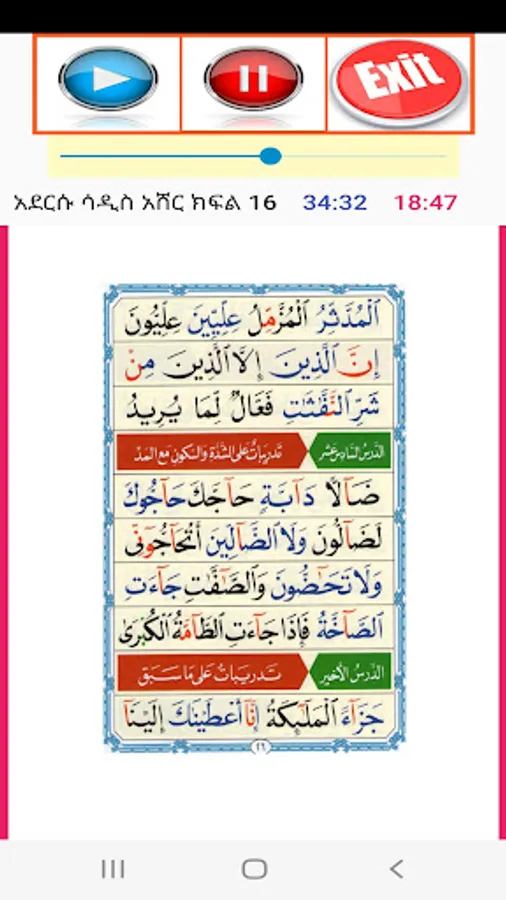 Exit
አደርሱ ሳዲስ አሸር ክፍል 16 34:32 18:47
اَلْمُدَّثِّرُ الْمُزَّمِّلُ عِلِّيِّينَ عِلِّيُّونَ
إِنَّ الَّذِينَ إِلَّا الَّذِينَ مِنْ
شَرِّ النَّفَّٰثَٰتِ فَعَّالٌ لِمَا يُرِيدُ
الدَّرْسُ السَّادِسَ عَشَرَ تَدْرِيبَاتٌ عَلَى الشَّدَّةِ وَالسُّكُونِ مَعَ الْمَدِّ
ضَآلًّا دَآبَّةٍ حَآجَّكَ حَآجُّوكَ
لَضَآلُّونَ وَلَا الضَّآلِّينَ أَتُحَآجُّوٓنِّى
وَلَا تَحَٰٓضُّونَ وَالصَّٰٓفَّٰتِ جَآءَتِ
الصَّآخَّةُ فَإِذَا جَآءَتِ الطَّآمَّةُ الْكُبْرَىٰ
الدَّرْسُ الْأَخِيرُ تَدْرِيبَاتٌ عَلَى مَا سَبَقَ
جَزَآءً الْمَلَٰٓئِكَةُ إِنَّآ أَعْطَيْنَٰكَ إِلَيْنَآ
٢٦